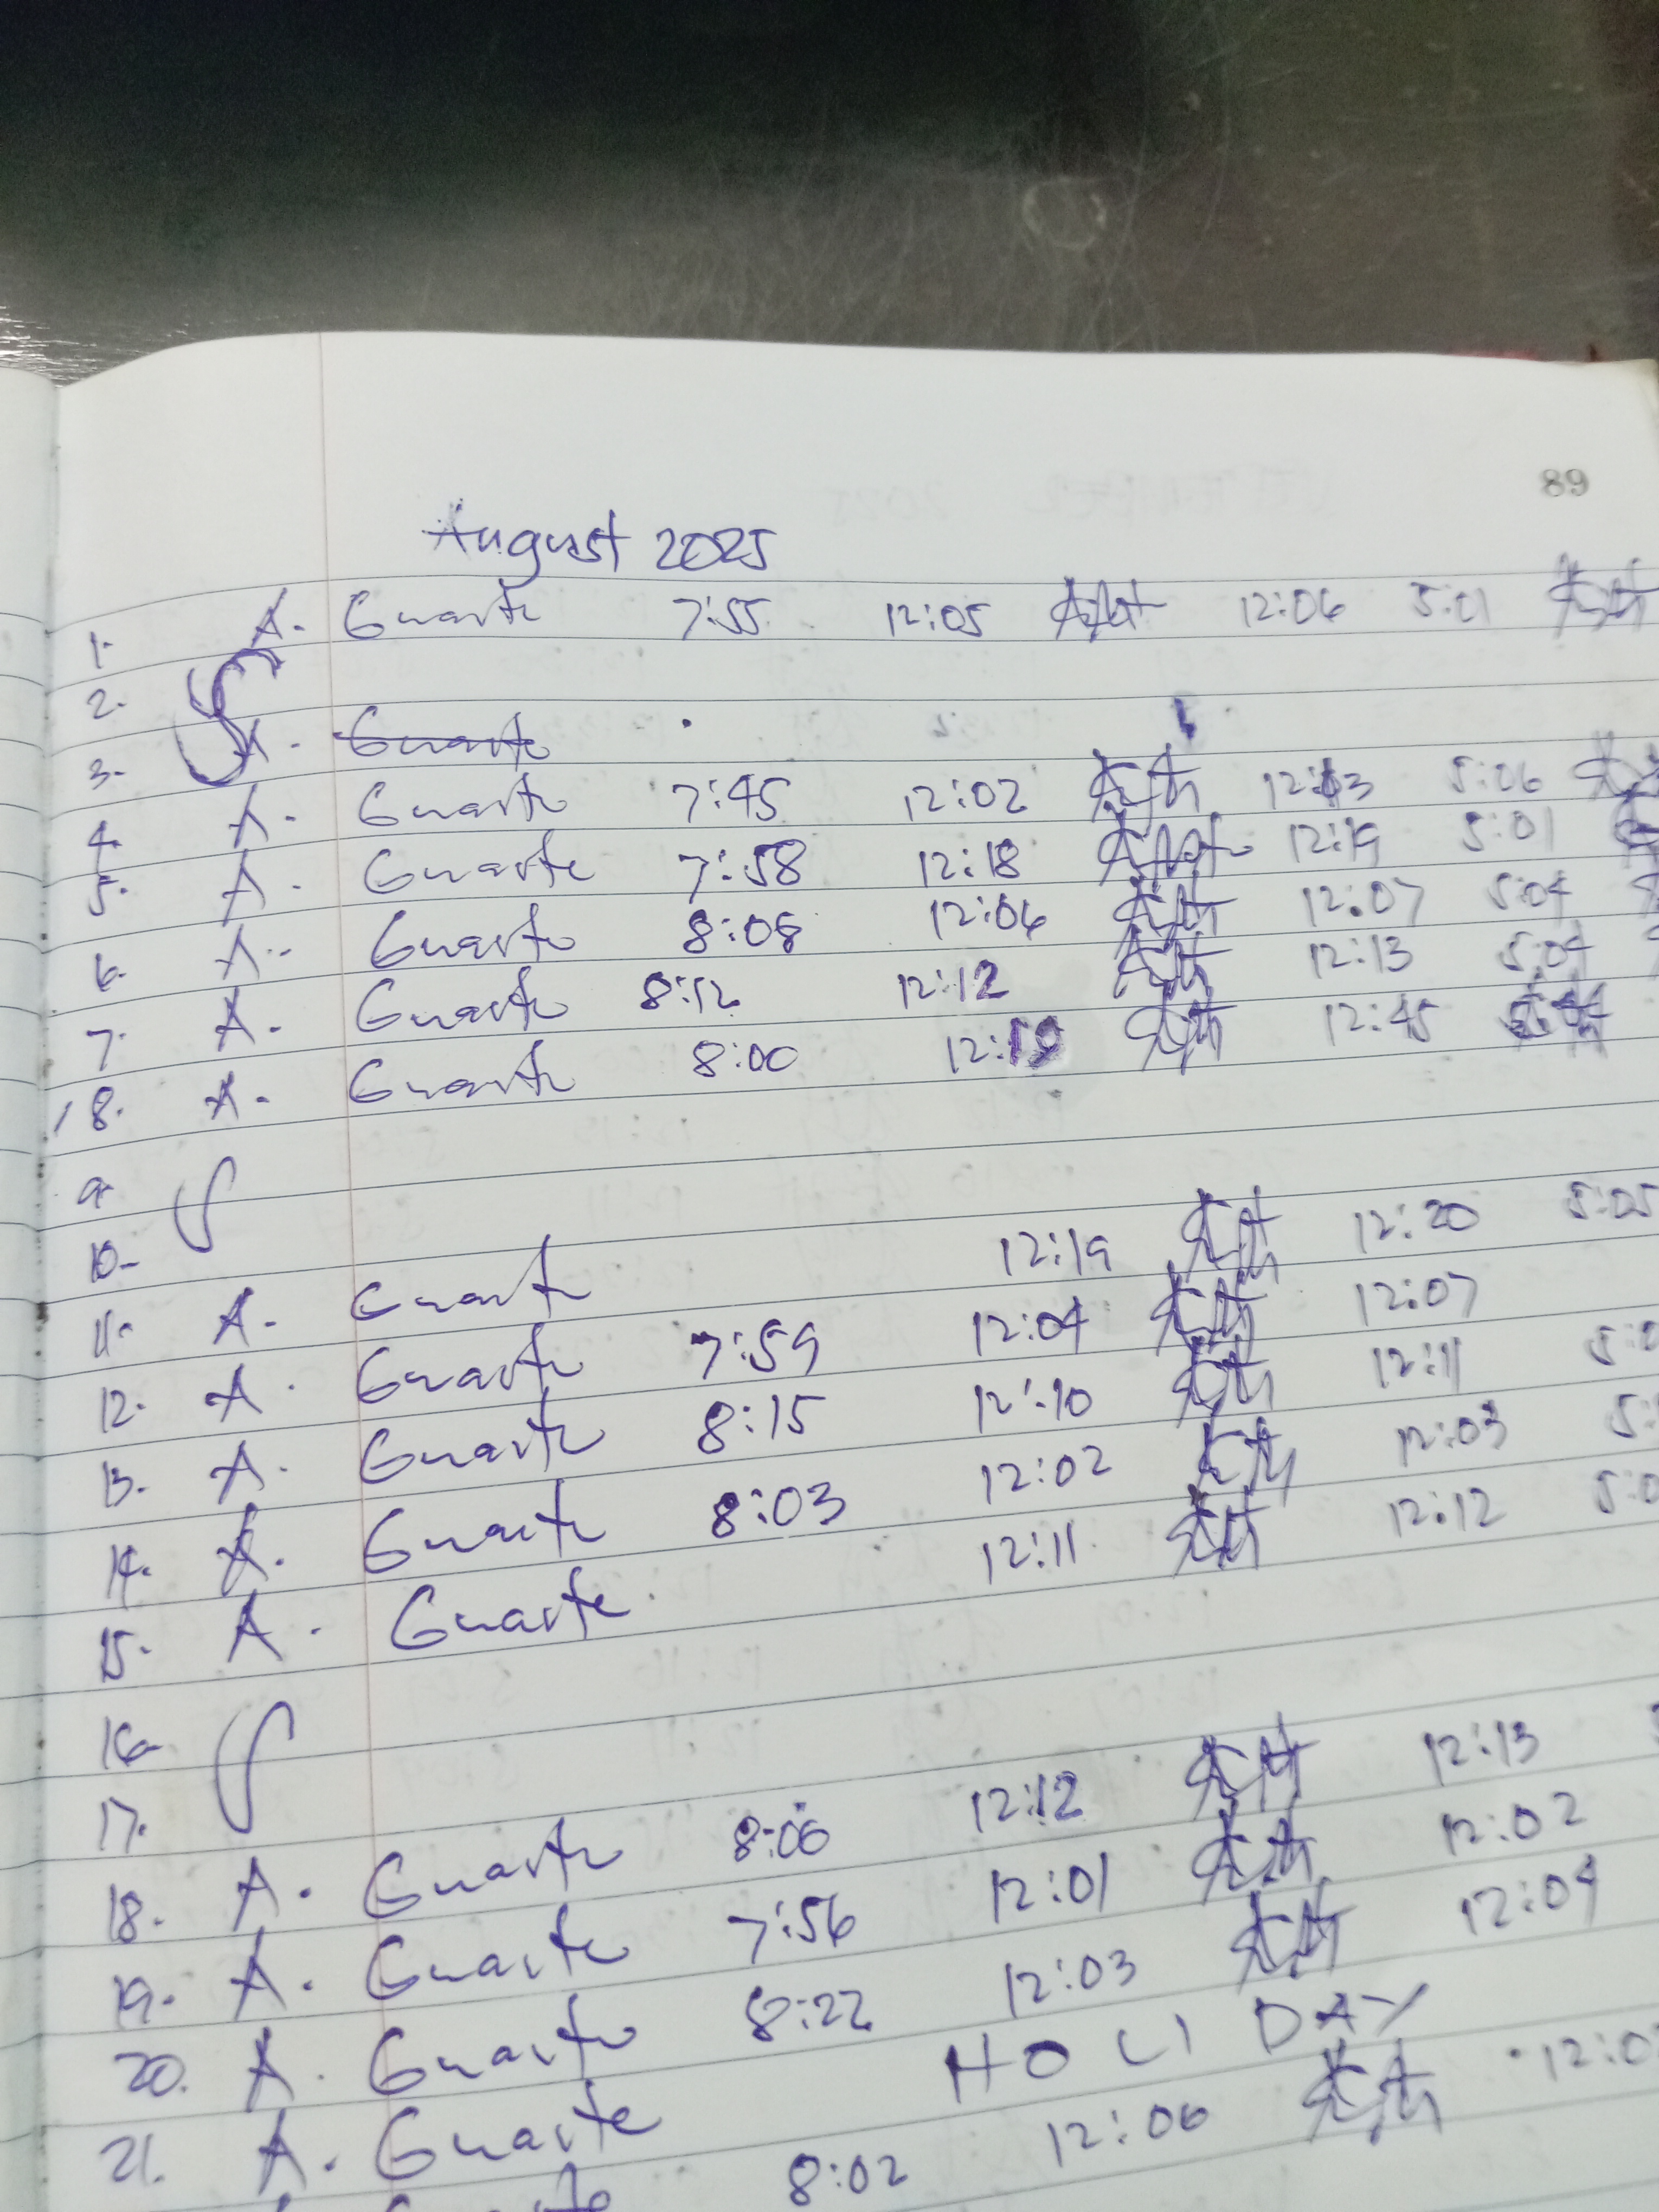 89
August 2025
1. A. Guarte 7:55 12:05 12:06 5:01
2. S
3. A. Guarte
4. A. Guarte 7:45 12:02 12:03 5:06
5. A. Guarte 7:58 12:18 12:19 5:01
6. A. Guarte 8:08 12:06 12:07 5:04
7. A. Guarte 8:12 12:12 12:13 5:04
8. A. Guarte 8:00 12:45
9. S
10.
11. A. Guarte 12:19 12:20 5:05
12. A. Guarte 7:59 12:04 12:07
13. A. Guarte 8:15 12:10 12:11
14. A. Guarte 8:03 12:02 12:03
15. A. Guarte 12:11 12:12
16. S
17.
18. A. Guarte 8:06 12:12 12:13
19. A. Guarte 7:56 12:01 12:02
20. A. Guarte 8:22 12:03 12:04
21. A. Guarte HOLIDAY
8:02 12:06